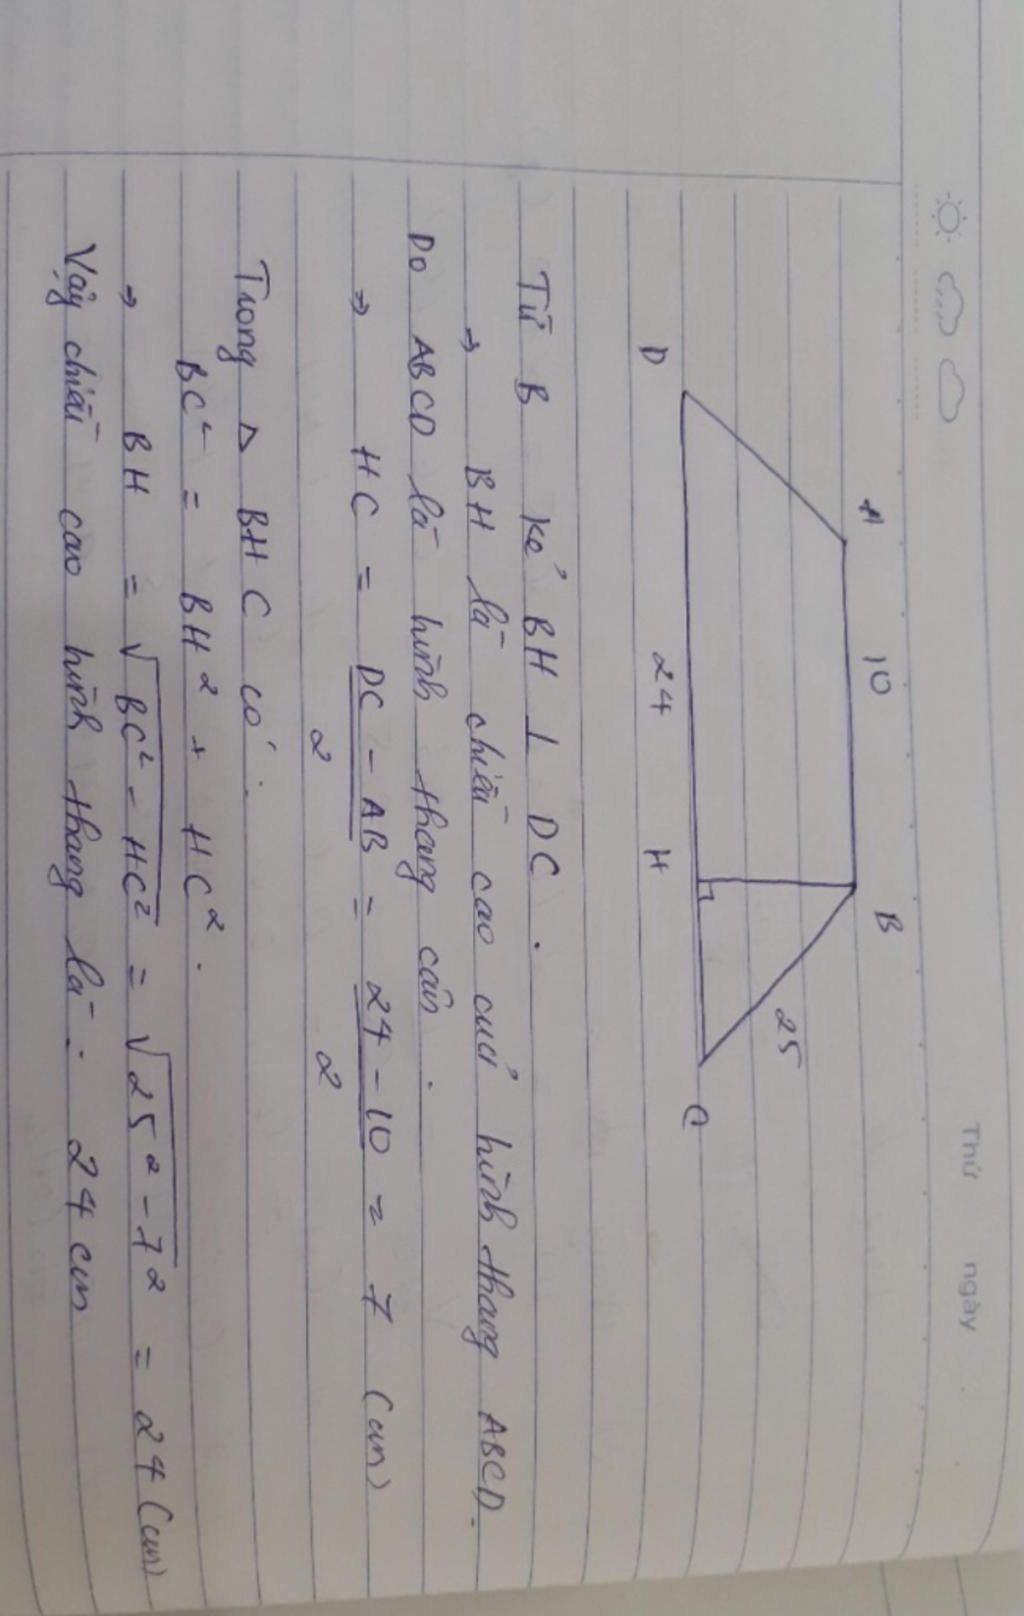 Thứ ngày
A 10 B
25
D 24 H C
Từ B kẻ BH ⊥ DC.
→ BH là chiều cao của hình thang ABCD.
Do ABCD là hình thang cân.
→ HC = DC - AB / 2 = 24 - 10 / 2 = 7 (cm)
Trong Δ BHC có:
BC² = BH² + HC².
→ BH = √BC² - HC² = √25² - 7² = 24 (cm)
Vậy chiều cao hình thang là: 24 cm